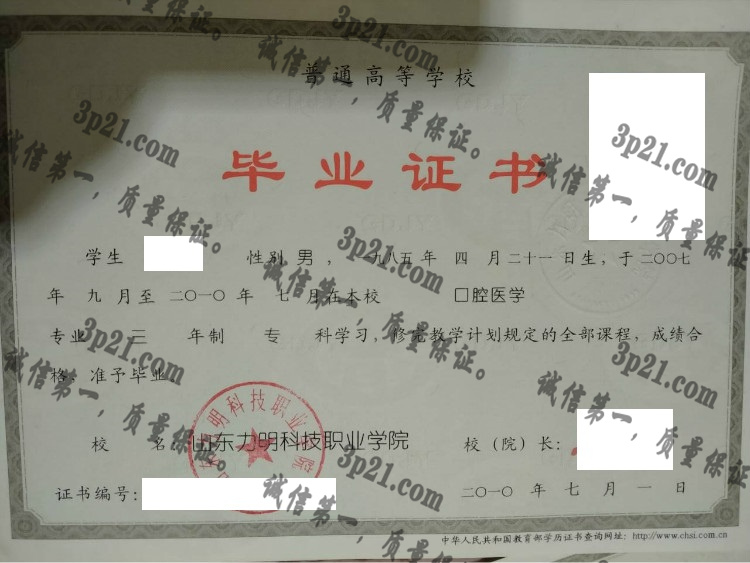 普通高等学校
毕业证书
学生 性别 男 , 一九八五年 四 月二十一日生,于二〇〇七
年 九 月至 二〇一〇 年 七 月在本校 口腔医学
专业 三 年制 专 科学习,修完教学计划规定的全部课程,成绩合
格,准予毕业
校 名 山东力明科技职业学院
校(院)长:
证书编号:
二〇一〇 年 七 月 一 日
中华人民共和国教育部学历证书查询网址: http://www.chsi.com.cn
3p21.com
诚信第一,质量保证。
3p21.com
诚信第一,质量保证。
3p21.com
诚信第一,质量保证。
3p21.com
诚信第一,质量保证。
3p21.com
诚信第一,质量保证。
3p21.com
诚信第一,质量保证。
3p21.com
诚信第一,质量保证。
3p21.com
诚信第一,质量保证。